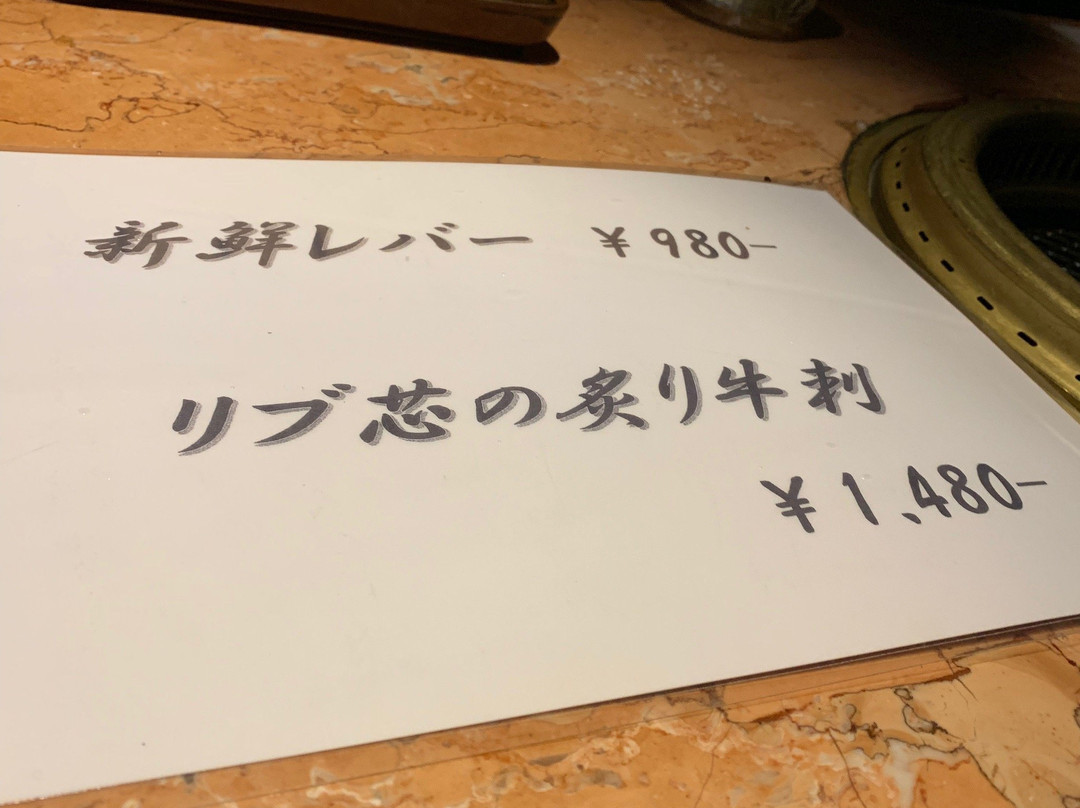 新鮮レバー ¥980-
リブ芯の炙り牛刺
¥1,480-